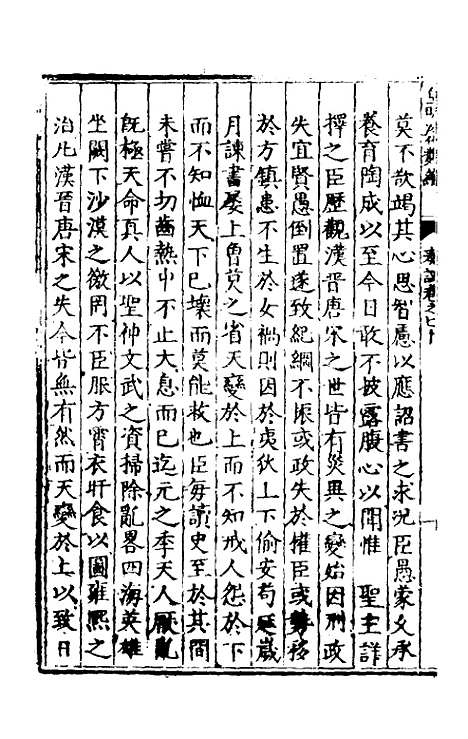 莫不欲竭其心思智慮以應詔書之求况臣愚蒙久承
養育陶成以至今日敢不披露腹心以聞惟 聖主詳
擇之臣歷觀漢晉唐宋之世皆有災異之變始因刑政
失宜賢愚倒置遂致紀綱不振或政失於權臣或勢移
於方鎮患不生於女禍則因於夷狄上下偷安苟延歲
月諫書屡上曾莫之省天變於上而不知戒人怨於下
而不知恤天下已壞而莫能救也臣每讀史至於其間
未嘗不切齒熱中不止大息而已迄元之季天人厭亂
既極天命真人以聖神文武之資掃除亂畧四海英雄
坐闕下沙漠之徼罔不臣服方宵衣旰食以圖雍熈之
治凡漢晉唐宋之失今皆無有然而天變於上以致日